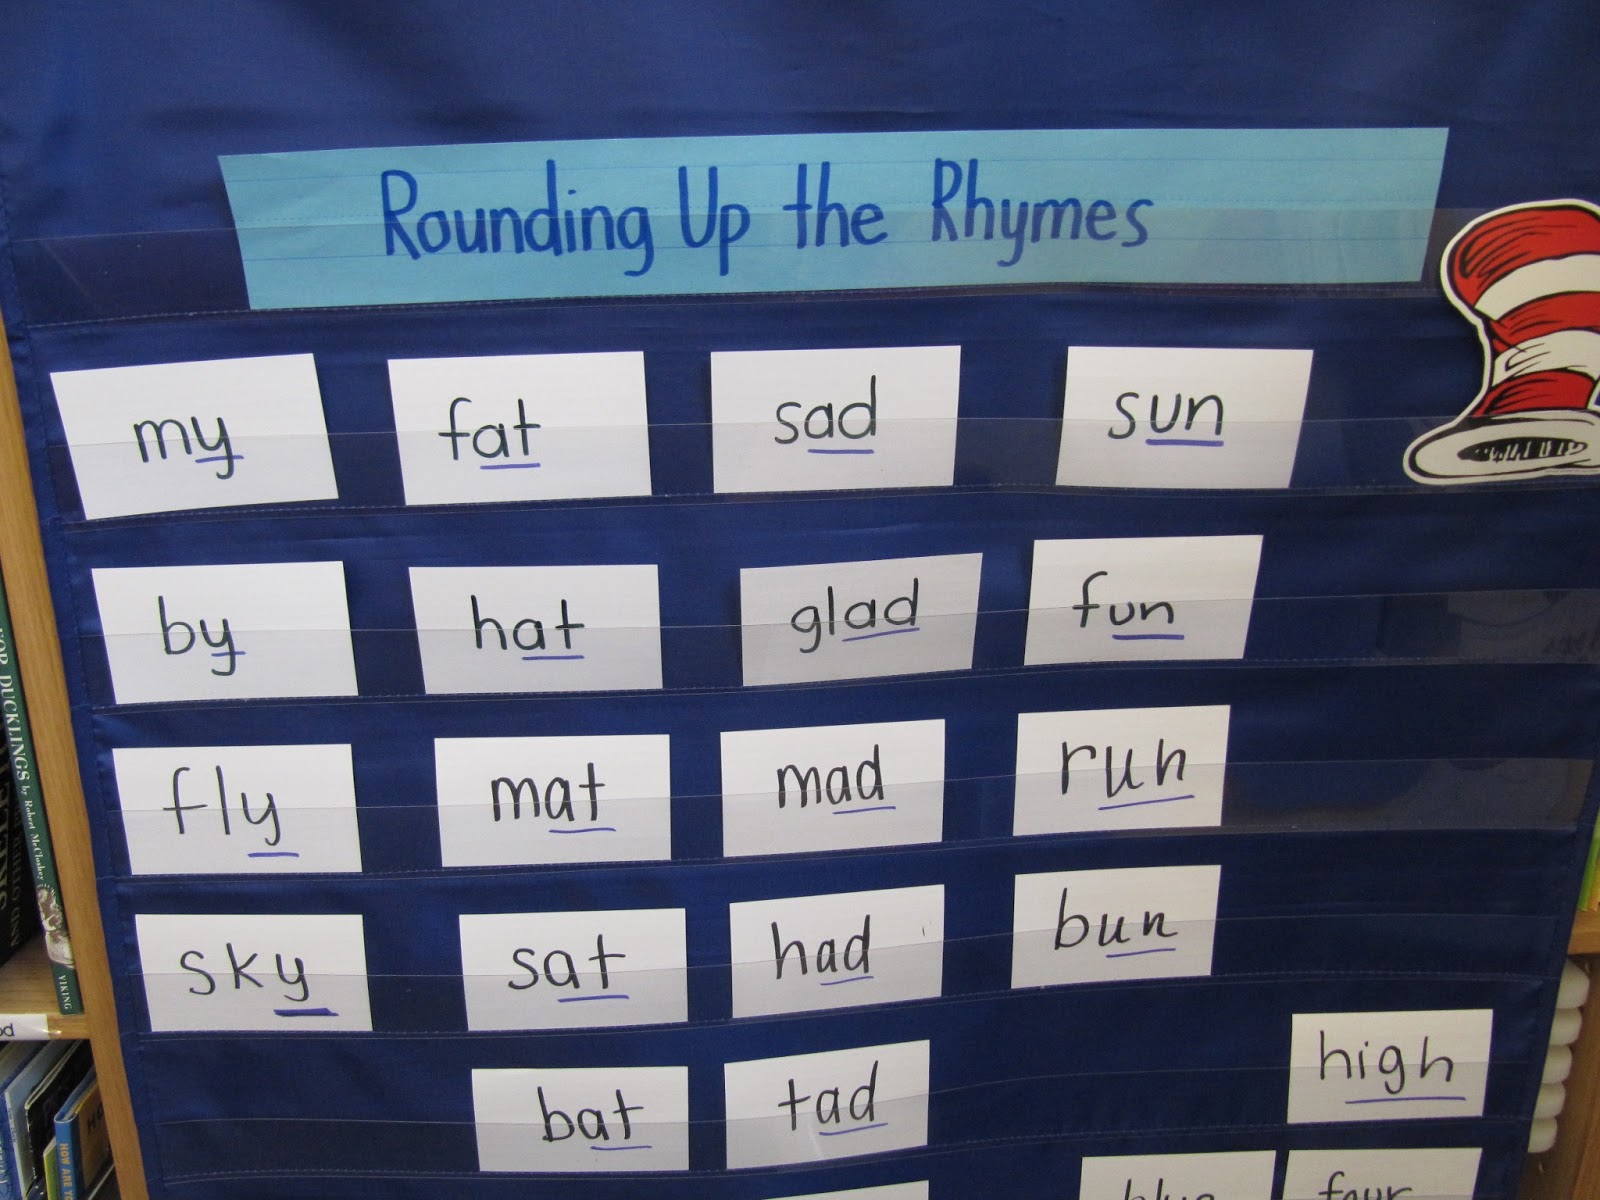 Rounding Up the Rhymes
my fat sad sun
by hat glad fun
fly mat mad run
sky sat had bun
bat tad high
four
TOP DUCKLINGS by Robert McCloskey
VIKING
od
HOW ARE YO